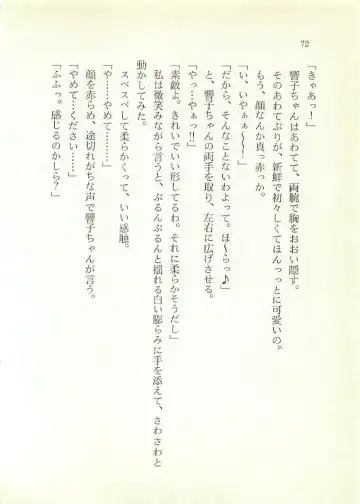 72
「きゃあっ！」
響子ちゃんはあわてて、両腕で胸をおおい隠す。
そのあわてぶりが、新鮮で初々しくてほんっっとに可愛いの。
もう、顔なんか真っ赤っか。
「い、いやぁぁ〜〜！」
「だから、そんなことないわよって。ほ〜らっ♪」
と、響子ちゃんの両手を取り、左右に広げさせる。
「やっ…やぁっっ‼」
「素敵よ。きれいでいい形してるわ。それに柔らかそうだし」
私は微笑みながら言うと、ぷるんぷるんと揺れる白い膨らみに手を添えて、さわさわと
動かしてみた。
スベスベして柔らかくって、いい感触。
「や……やめて………」
顔を赤らめ、途切れがちな声で響子ちゃんが言う。
「やめて…ください……」
「ふふっ。感じるのかしら？」